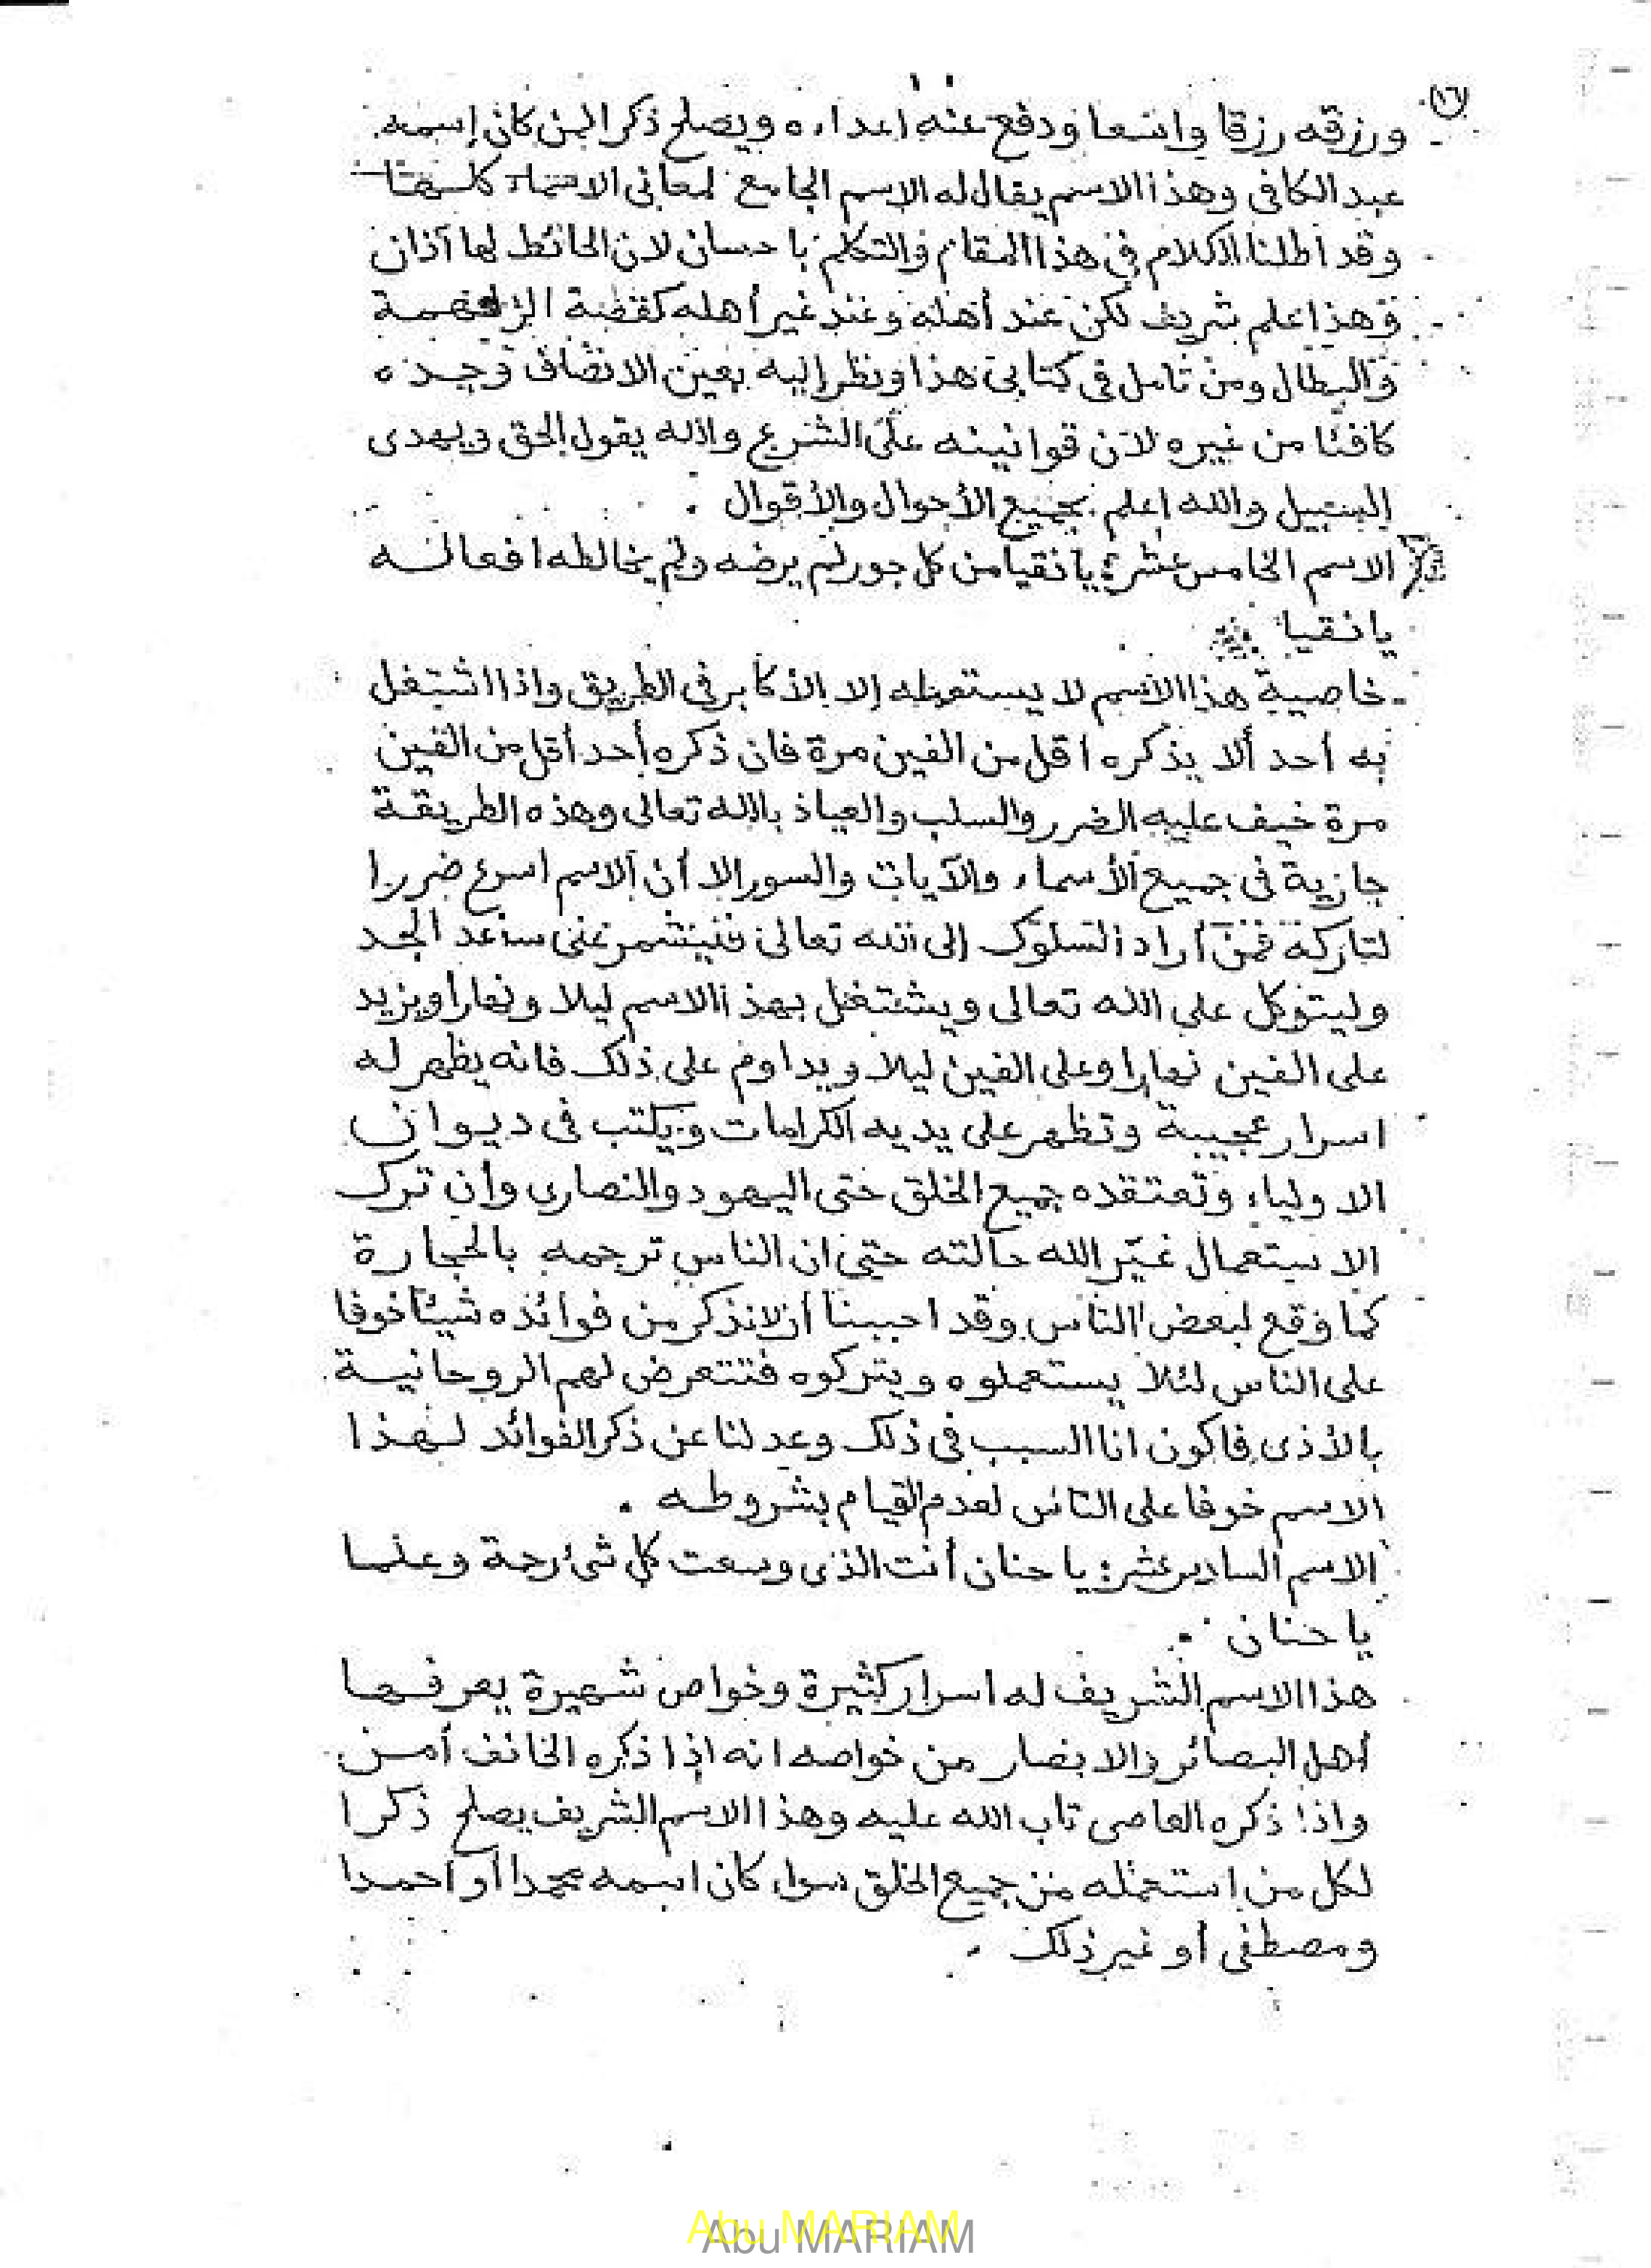 (١٦)
ورزقه رزقا واسعا ودفع عنه اعداءه ويصلح ذكرا لمن كان إسمه
عبد الكافي وهذا الاسم يقال له الاسم الجامع لمعانى الاسماء كلها
وقد اطلنا الكلام فى هذا المقام والتكلم باحسان لان الحائط لها آذان
وهذا علم شريف لكن عند أهله وعند غير أهله كقضية
والبطال ومن تامل فى كتابى هذا ونظر إليه بعين الانصاف وجده
كافيا من غيره لان قوانينه على الشرع والله يقول الحق ويهدى
السبيل والله اعلم بجميع الأحوال والأقوال .
الاسم الخامس عشر؛ يا نقيا من كل جور لم يرضه ولم يخالطه افعالـه
يا نقيا
خاصية هذا الاسم لا يستعمله إلا الأكابر فى الطريق واذا اشتغل
به أحد ألا يذكره اقل من الفين مرة فان ذكره أحد أقل من الفين
مرة خيف عليه الضرر والسلب والعياذ بالله تعالى وهذه الطريقة
جارية فى جميع الأسماء والآيات والسور الا أن الاسم اسرع ضررا
لتاركه فمن أراد السلوك إلى الله تعالى فليشمر عن ساعد الجد
وليتوكل على الله تعالى ويشتغل بهذا الاسم ليلا ونهارا ويزيد
على الفين نهارا وعلى الفين ليلا ويداوم على ذلك فانه يظهر له
اسرار عجيبة وتظهر على يديه الكرامات ويكتب فى ديوان
الاولياء وتعتقده جميع الخلق حتى اليهود والنصارى وأن ترك
الاستعمال غيّر الله حالته حتى ان الناس ترجمه بالحجارة
كما وقع لبعض الناس وقد احببنا أن لانذكر من فوائده شيئا خوفا
على الناس لئلا يستعملوه ويتركوه فتتعرض لهم الروحانية
بالأذى فاكون انا السبب فى ذلك وعدلنا عن ذكر الفوائد لهذا
الاسم خوفا على الناس لعدم القيام بشروطه .
الاسم السادس عشر؛ يا حنان أنت الذى وسعت كل شئ رحمة وعلما
يا حنان .
هذا الاسم الشريف له اسرار كثيرة وخواص شهيرة يعرفها
أهل البصائر والابصار من خواصه انه إذا ذكره الخائف أمن
واذا ذكره العاصى تاب الله عليه وهذا الاسم الشريف يصلح ذكرا
لكل من استعمله من جميع الخلق سواء كان اسمه محمدا أو احمدا
ومصطفى أو غير ذلك .
Abu MARIAM